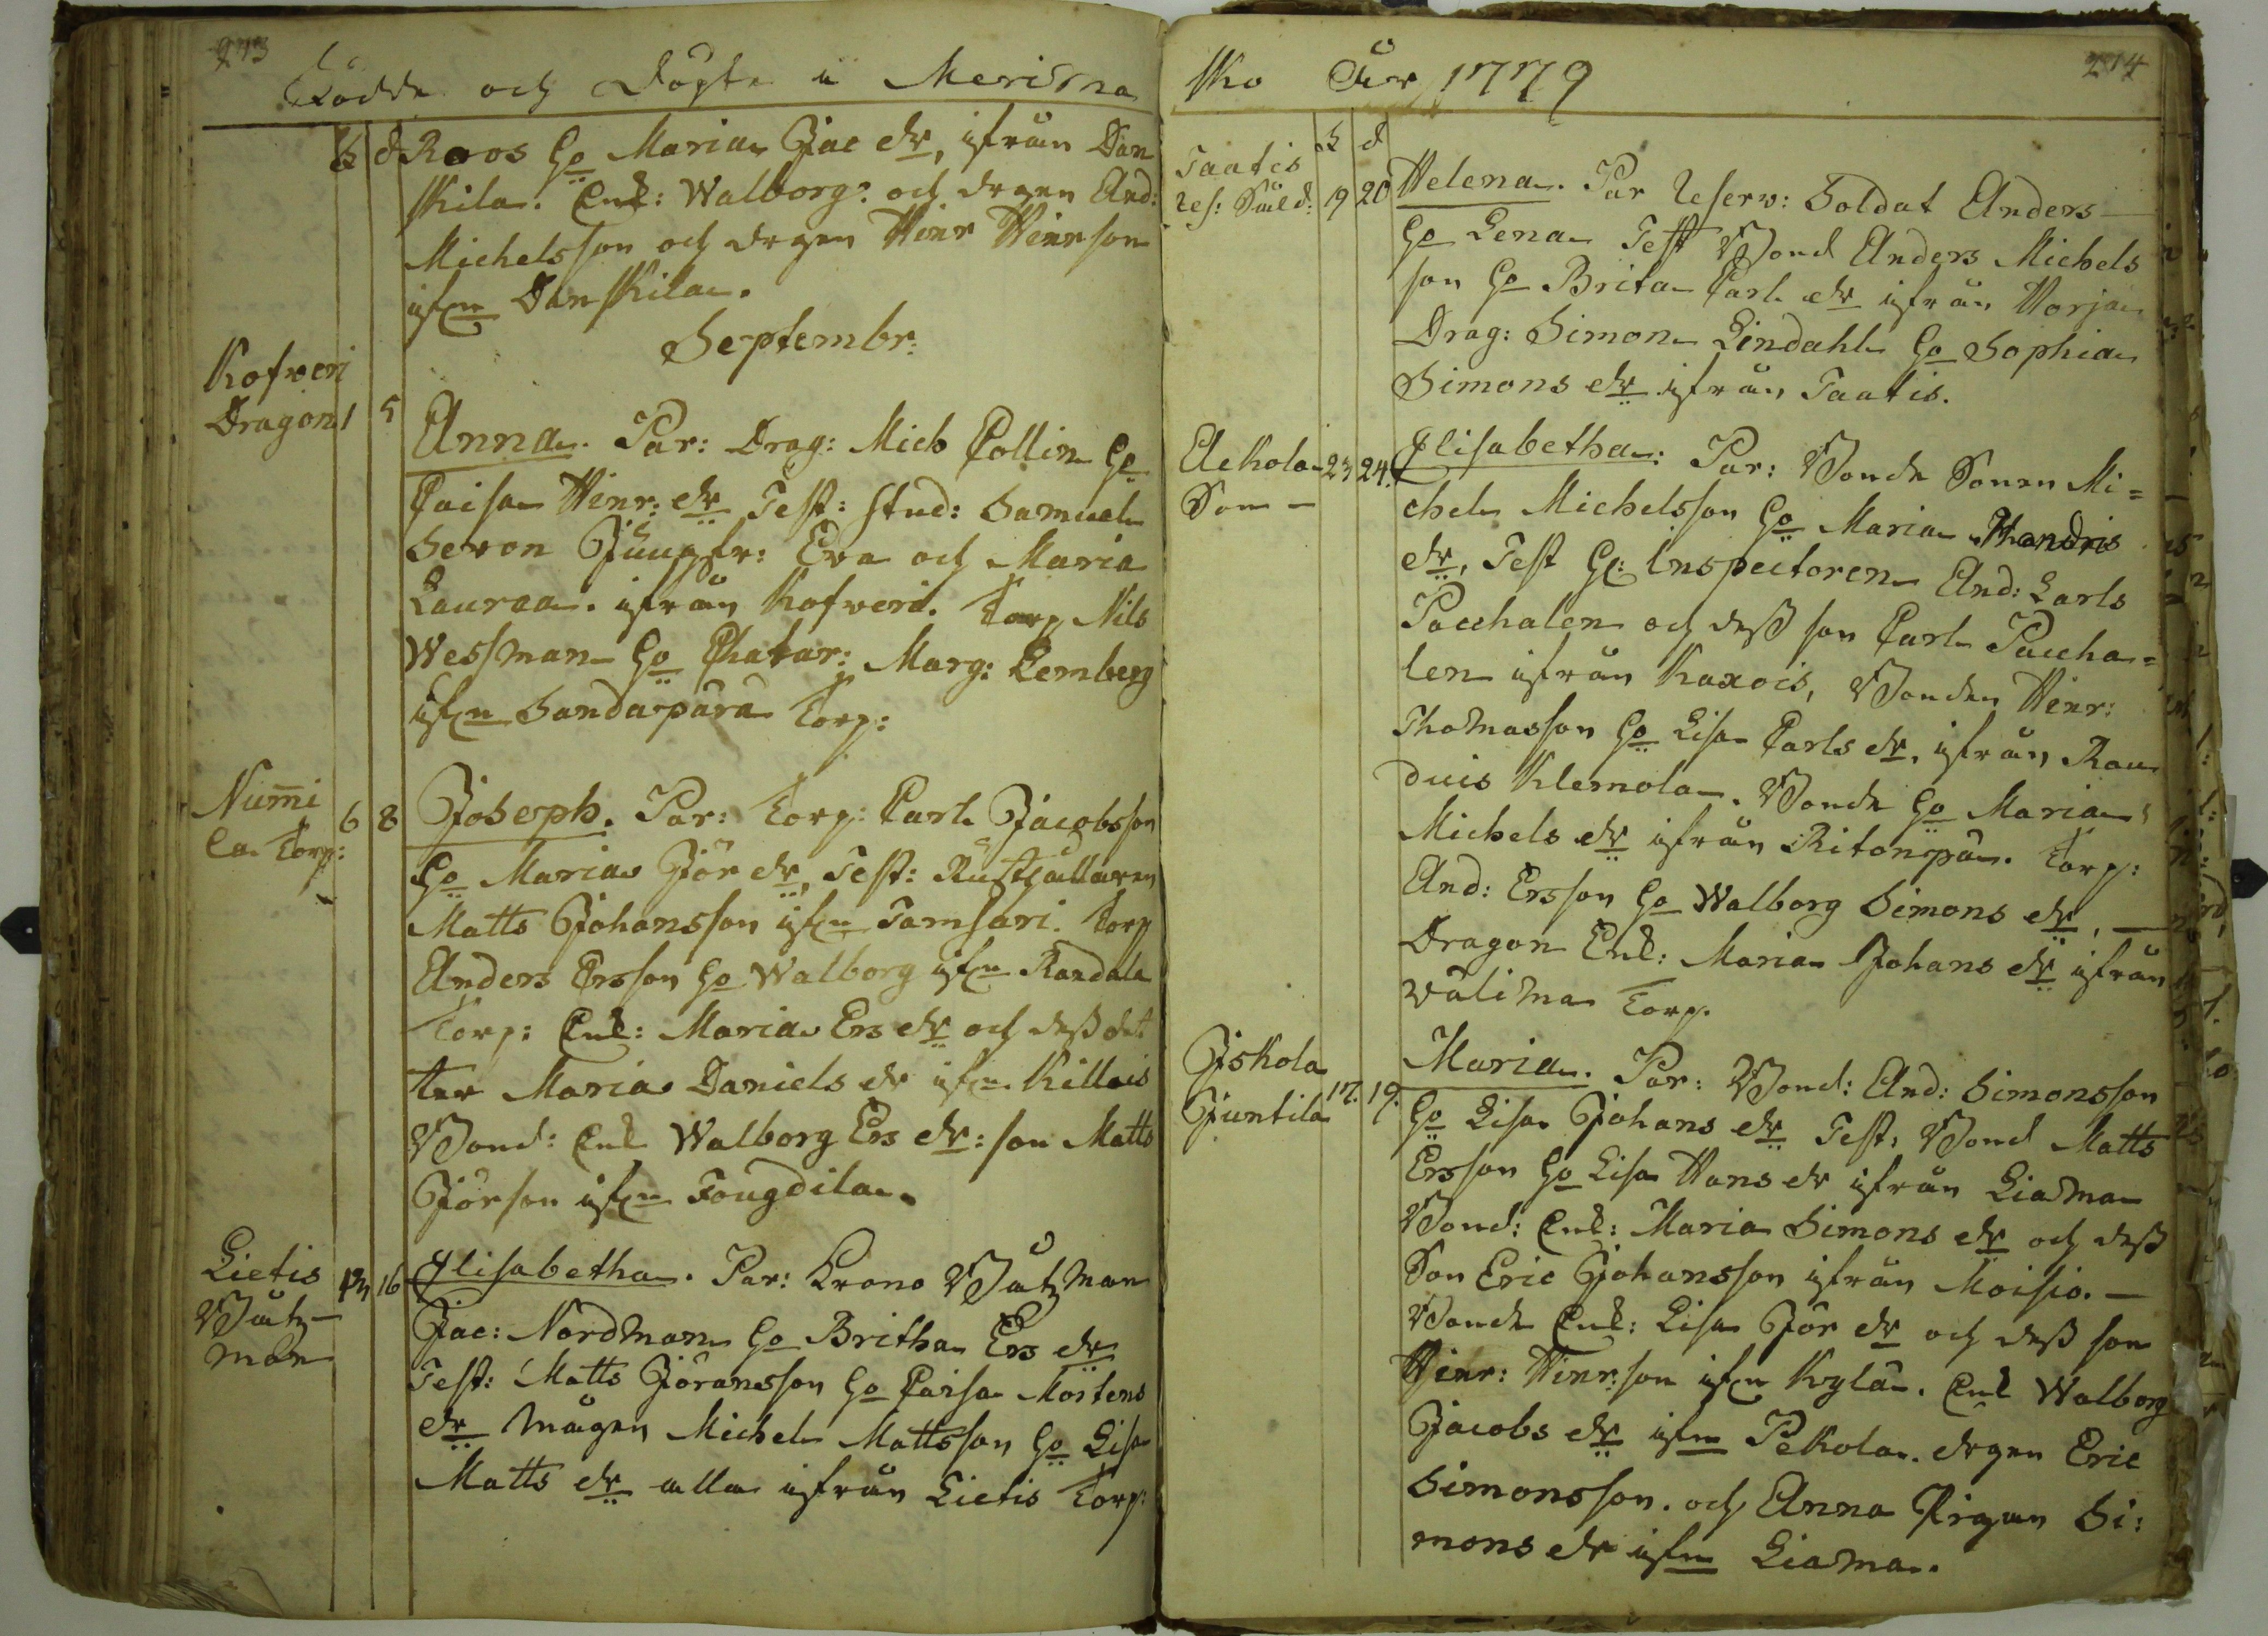 273
Födde och Döpte i Merisma
f d Roos Ho Maria Jac dr, ifrån Dan
skila. Enk: Walborg: och drgen And:
Michelsson och drgen Hinr Hinrson
ifrn Danskila.
Septembr:
Kofveri
Dragon 1 5 Anna. Par: Drag: Mich Collin Ho
Caisa Hinr: dr Test: stud: Samuel
Sevon Jungfr: Eva och Maria
Lauraa. ifrån Kofveri. Torp Nils
Wessman Ho Chatar: Marg: Lemberg
ifrn Sandanpära Torp:
Num̄i
la Torp: 6 8 Joseph. Par: Torp: Carl Jacobsson
Ho Maria Jör dr, Test: Rusthållaren
Matts Johansson ifrn Tamsari. Torp
Anders Ersson Ho Walborg ifrn Randala
Torp: Enk: Maria Ers dr och dess dot
ter Maria Daniels dr ifrn Killois
Bond: Enk Walborg Ers dr: son Matts
Jörson ifrn Fougdila.
Lietis
Båtz-
man 13 16 Elisabetha. Par: Krono Båtzman
Jac: Nordman Ho Britha Ers dr
Test: Matts Jöransson Ho Caisa Mårtens
dr mågen Michel Mattsson Ho Lisa
Matts dr alla ifrån Lietis Torp:
sko År 1779
274
f d
Taatis
Res: Såld: 19 20 Helena. Par Reserv: Soldat Anders
Ho Lena Test Bond Anders Michels
son Ho Brita Carl dr ifrån Horja
Drag: Simon Lindahl Ho Sophia
Simons dr ifrån Taatis.
Aekola
Son 23 24. Elisabetha: Par: Bonde Sonen Mi=
chel Michelsson Ho Maria Handris
dr, Test H: Inspectoren And: Carls
Pacchalen och dess son Carl Paccha=
len ifrån Kaxois, Bonden Hinr:
Thomasson Ho Lisa Carls dr, ifrån Rau
duis Klemola. Bonde Ho Maria
Michels dr ifrån Ritonpä. Torp:
And: Ersson Ho Walborg Simons dr,
Dragon Enk: Maria Johans dr ifrån
välima Torp.
Jskola
Juntila 17. 19. Maria. Par: Bond: And: Simonsson
Ho Lisa Johans dr Test: Bond Matts
Ersson Ho Lisa Hans dr ifrån Liama
Bond: Enk: Maria Simons dr och dess
Son Eric Johansson ifrån Moisio.
Bonde Enk: Lisa Jör dr och dess son
Hinr: Hinr:son ifrn Kylä. Enk Walborg
Jacobs dr ifrn Pekola. drgen Eric
Simonsson. och Anna Pigan Si:
mons dr ifrn Liama.